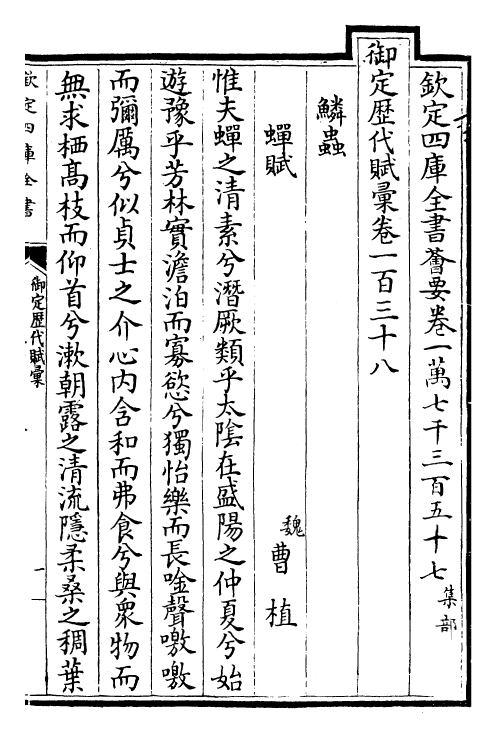 欽定四庫全書薈要卷一萬七千三百五十七 集部
御定歷代賦彙卷一百三十八
鱗蟲
蟬賦 魏 曹植
惟夫蟬之清素兮潛厥類乎太陰在盛陽之仲夏兮始
遊豫乎芳林實澹泊而寡慾兮獨怡樂而長唫聲噭噭
而彌厲兮似貞士之介心内含和而弗食兮與衆物而
無求栖髙枝而仰首兮漱朝露之清流隱柔桑之稠葉
欽定四庫全書
御定歷代賦彙
一